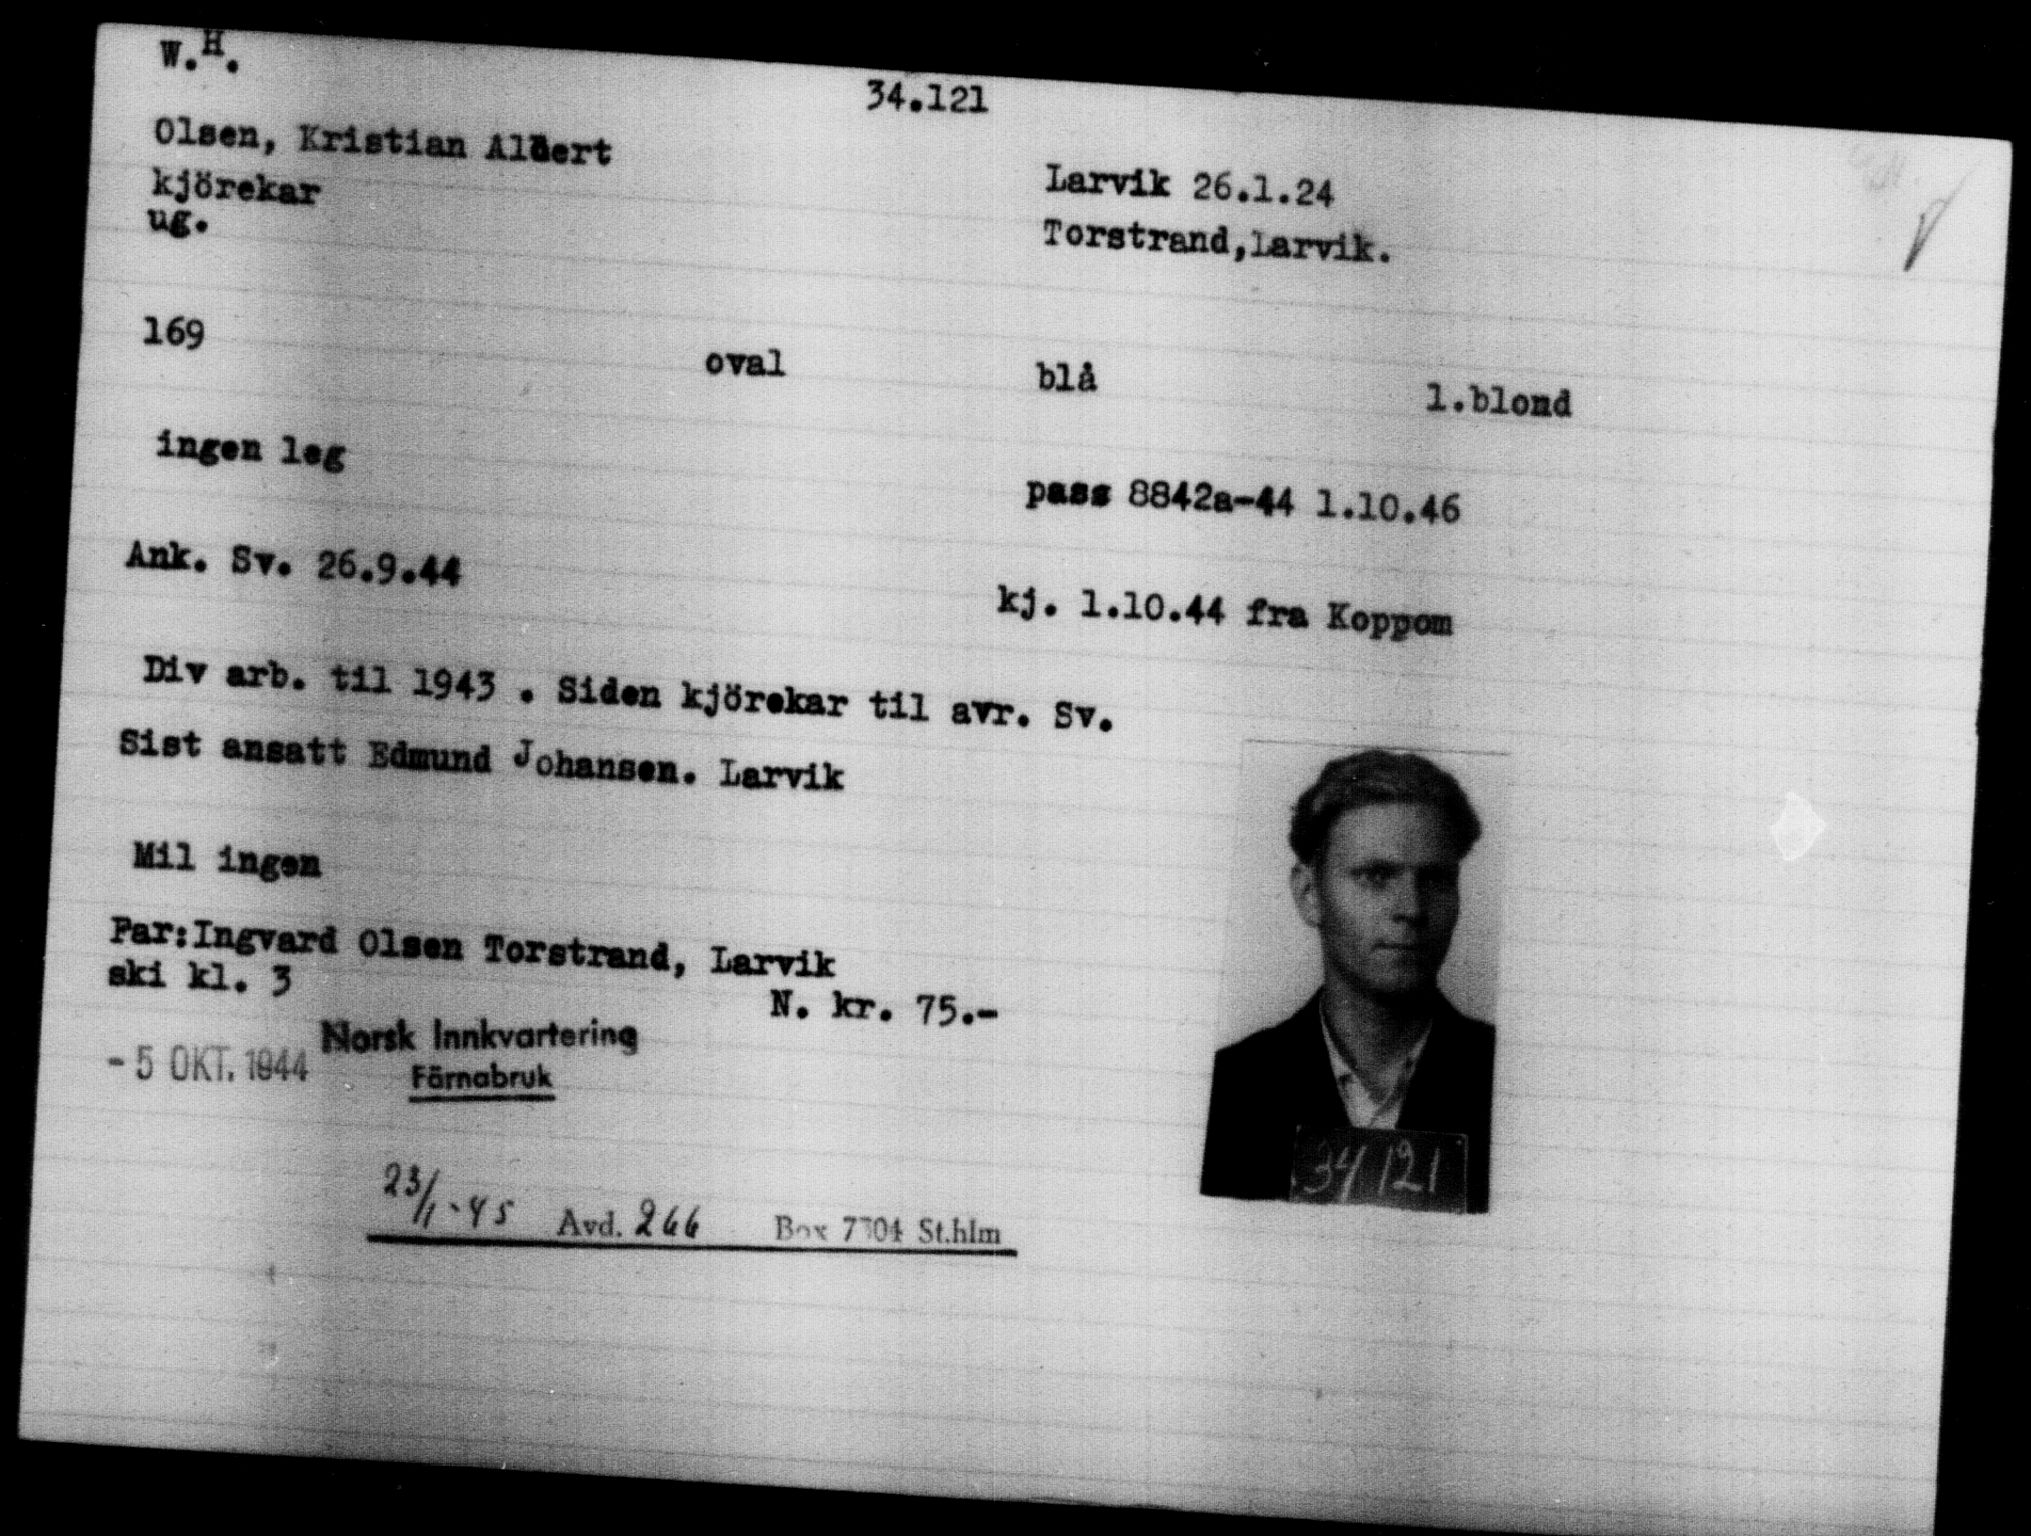 W.H.
34.121
Olsen, Kristian Albert
Larvik 26.1.24
kjörekar
Torstrand,Larvik.
ug.
169 oval blå l.blond
ingen leg
pass 8842a-44 1.10.46
Ank. Sv. 26.9.44
kj. 1.10.44 fra Koppom
Div arb. til 1943 . Siden kjörekar til avr. Sv.
Sist ansatt Edmund Johansen. Larvik
Mil ingen
Far:Ingvard Olsen Torstrand, Larvik
ski kl. 3
N. kr. 75.-
- 5 OKT. 1944 Norsk Innkvartering
Färnabruk
23/1-45 Avd. 266 Box 7304 St.hlm
34121